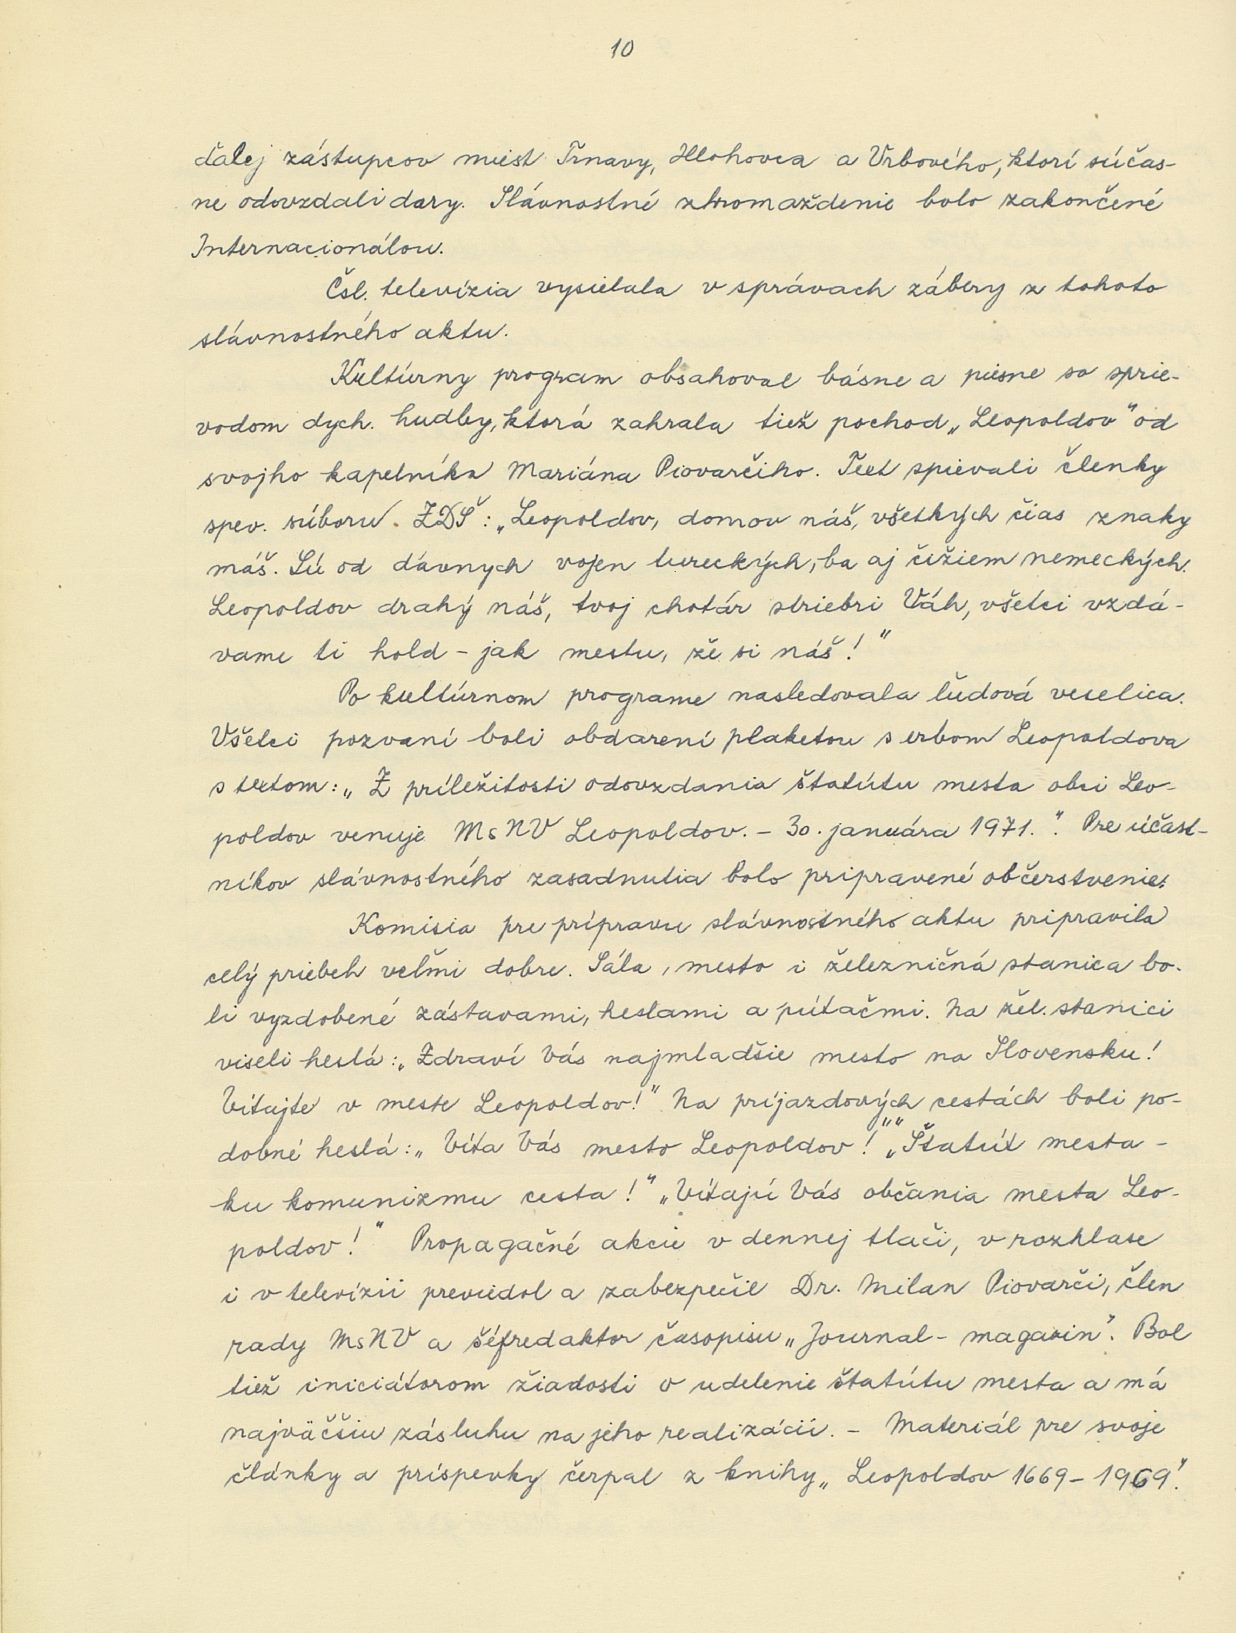 10
ďalej zástupcov miest Trnavy, Hlohovca a Vrbového, ktorí súčas-
ne odovzdali dary. Slávnostné zhromaždenie bolo zakončené
Internacionálou.
Čsl. televízia vysielala v správach zábery z tohoto
slávnostného aktu.
Kultúrny program obsahoval básne a piesne so sprie-
vodom dych. hudby, ktorá zahrala tiež pochod „Leopoldov" od
svojho kapelníka Mariána Piovarčiho. Text spievali členky
spev. súboru ZDŠ: „Leopoldov, domov náš, všetkých čias znaky
máš. Sú od dávnych vojen tureckých, ba aj čižiem nemeckých.
Leopoldov drahý náš, tvoj chotár striebri Váh, všetci vzdá-
vame ti hold - jak mestu, že si náš!"
Po kultúrnom programe nasledovala ľudová veselica.
Všetci pozvaní boli obdarení plaketou s erbom Leopoldova
s textom: „Z príležitosti odovzdania štatútu mesta obci Leo-
poldov venuje MsNV Leopoldov. - 30. januára 1971.". Pre účast-
níkov slávnostného zasadnutia bolo pripravené občerstvenie.
Komisia pre prípravu slávnostného aktu pripravila
celý priebeh veľmi dobre. Sála, mesto i železničná stanica bo-
li vyzdobené zástavami, heslami a pútačmi. Na žel. stanici
viseli heslá: „Zdraví Vás najmladšie mesto na Slovensku!
Vitajte v meste Leopoldov!" Na príjazdových cestách boli po-
dobné heslá: „Víta Vás mesto Leopoldov!" „Štatút mesta -
ku komunizmu cesta!" „Vítajú Vás občania mesta Leo-
poldov!" Propagačné akcie v dennej tlači, v rozhlase
i v televízii previedol a zabezpečil Dr. Milan Piovarči, člen
rady MsNV a šéfredaktor časopisu „Journal - magazin". Bol
tiež iniciátorom žiadosti o udelenie štatútu mesta a má
najväčšiu zásluhu na jeho realizácii. - Materiál pre svoje
články a príspevky čerpal z knihy „Leopoldov 1669 - 1969".